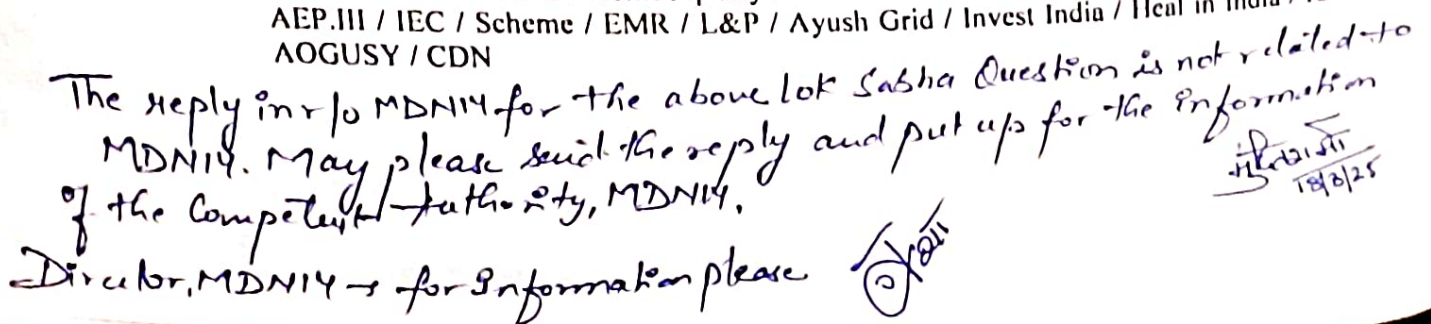 AEP.III / IEC / Scheme / EMR / L&P / Ayush Grid / Invest India / Heal in India /
AOGUSY / CDN
The reply in r/o MDNIY for the above Lok Sabha Question is not related to
MDNIY. May please send the reply and put up for the information
of the Competent Authority, MDNIY.
18/3/25
Director, MDNIY → for Information please